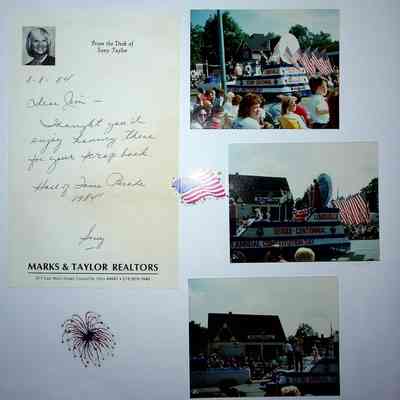 From the Desk of
Suzy Taylor
8-8-84
Dear Jim -
Thought you'd
enjoy having these
for your scrap book
Hall of Fame Parade
1984
Suzy
MARKS & TAYLOR REALTORS
CENTENNIAL
ANNUAL CONSTITUTION DAY